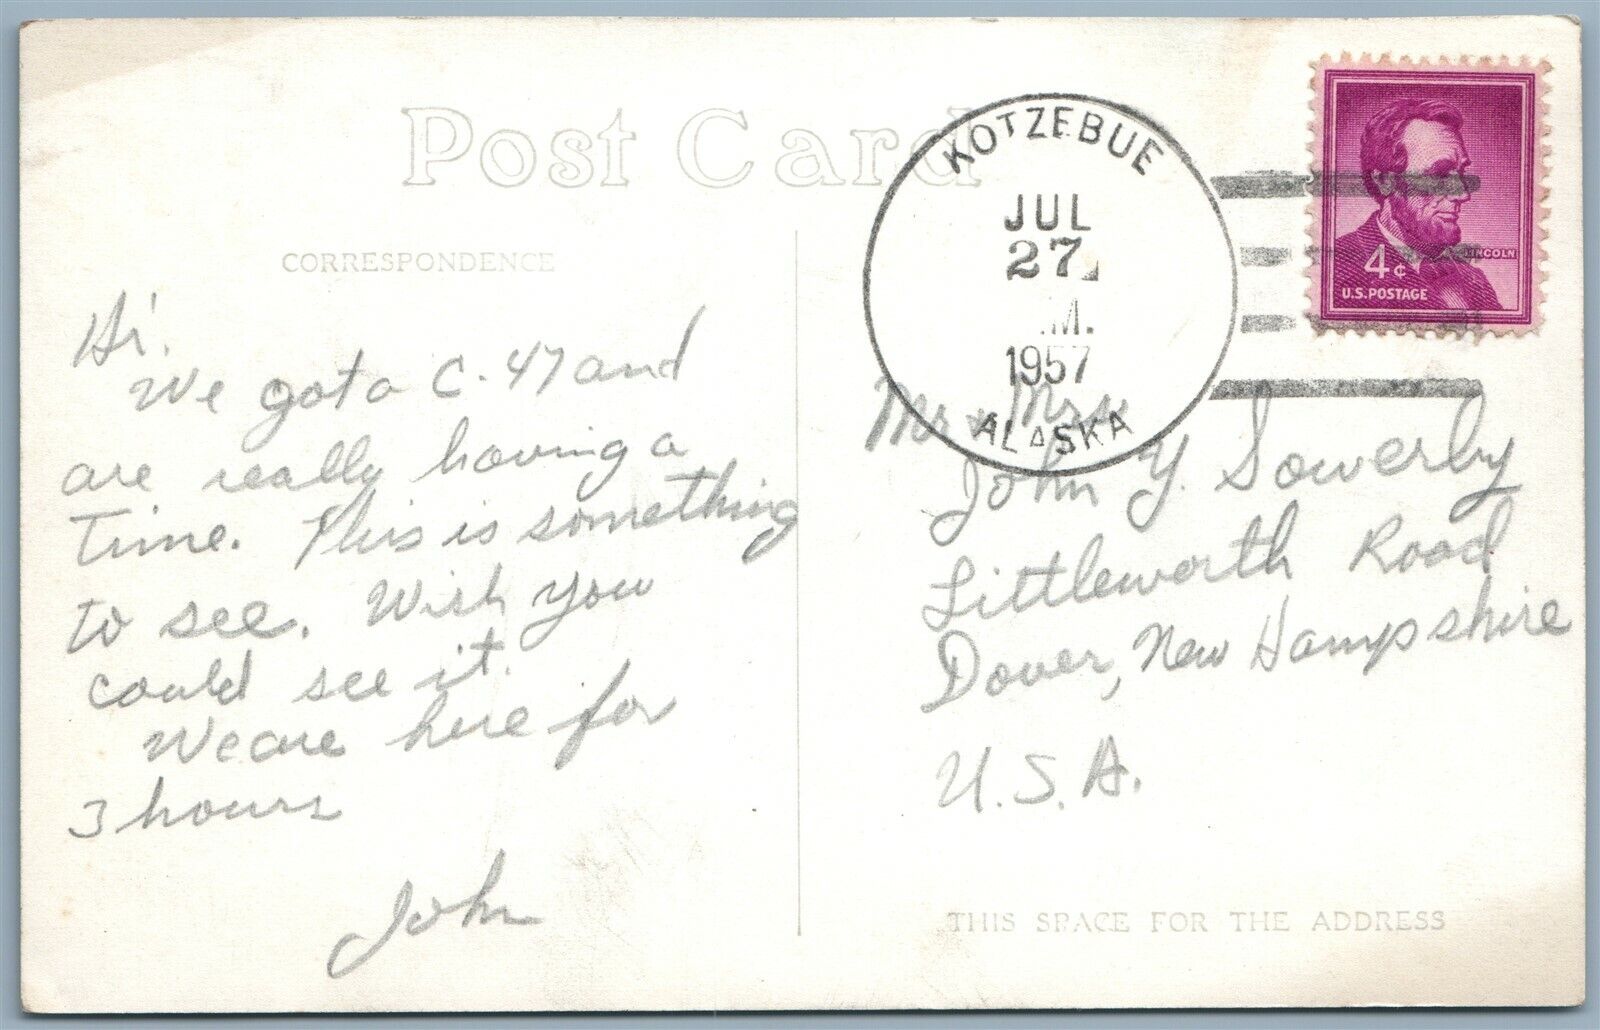 Post Card
CORRESPONDENCE
Hi.
We got a C-47 and
are really having a
time. This is something
to see. Wish you
could see it.
We are here for
3 hours
John
KOTZEBUE
JUL
27
.M.
1957
ALASKA
LINCOLN
4¢
U.S. POSTAGE
Mr & Mrs
John Y. Sowerby
Littleworth Road
Dover, New Hampshire
U.S.A.
THIS SPACE FOR THE ADDRESS